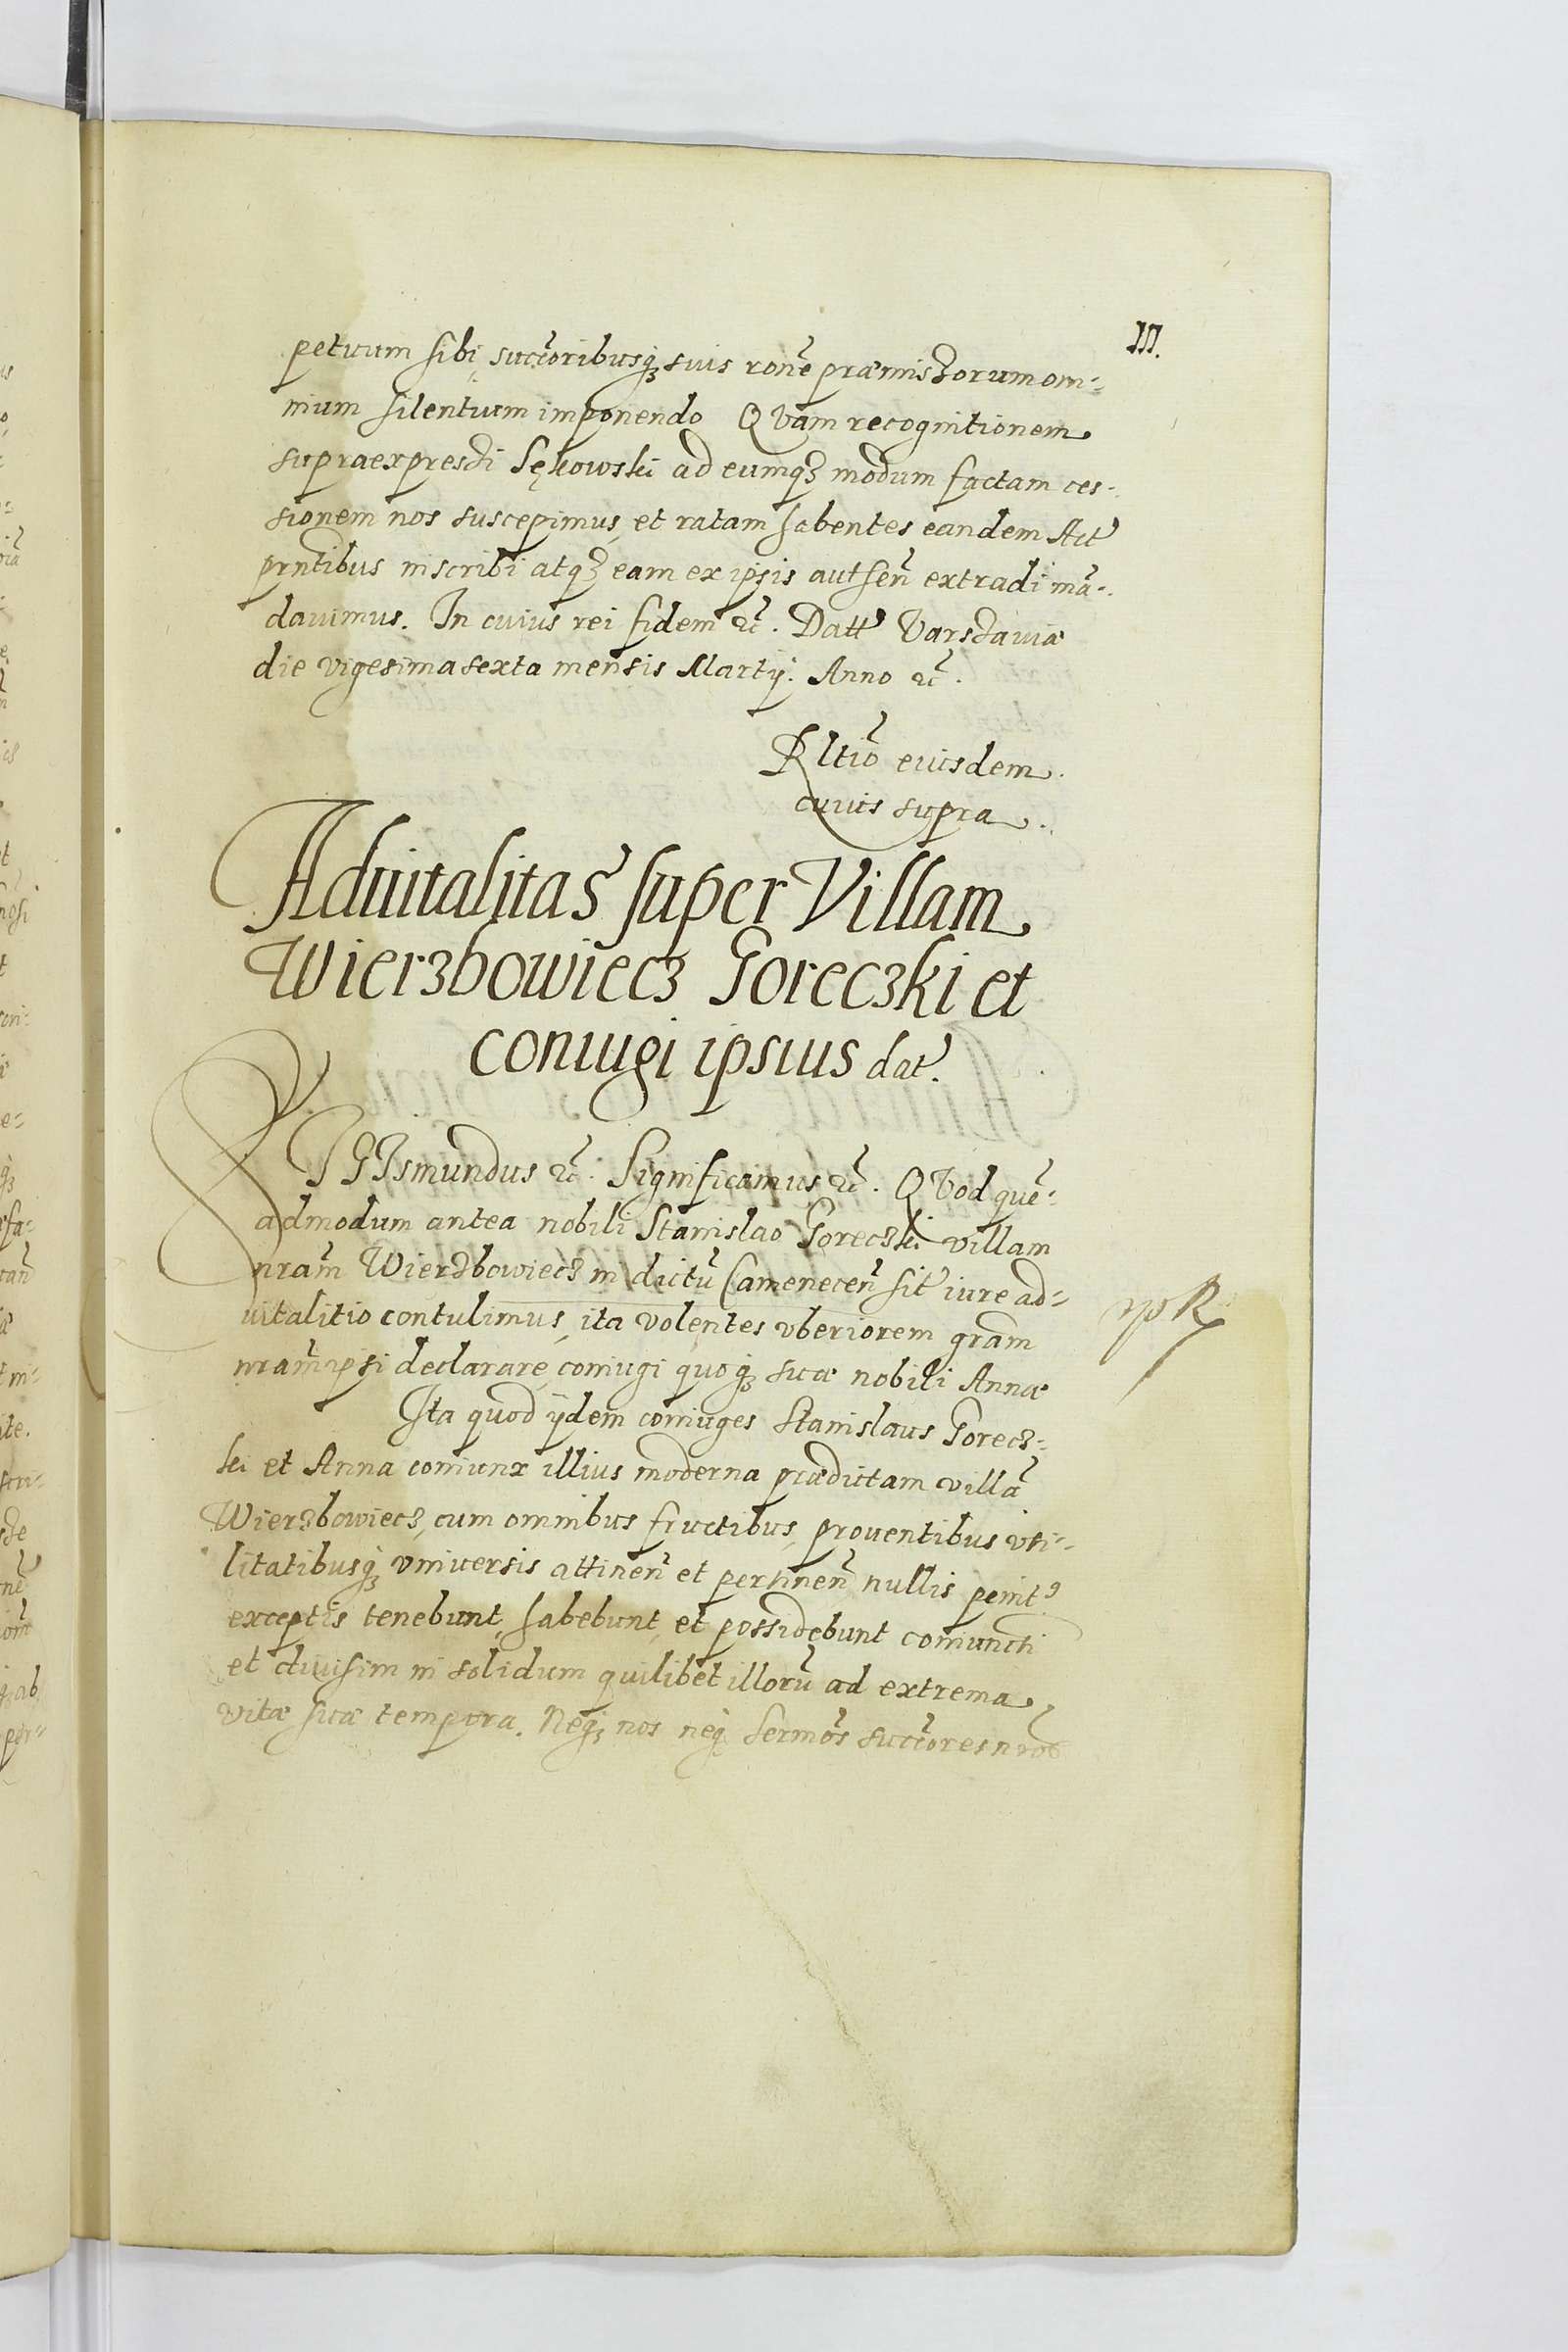 111.
petuum sibi, succ̃oribusq̃ȝ suis rõne præmissorum om=
nium silentium imponendo QVam recognitionem
supraexpressi Sękowski ad eumqȝ modum factam ces=
sionem nos suscepimus, et ratam habentes eandem Act̕
prñtibus inscribi atqȝ eam ex ipsis authen̄ extradi mã=
dauimus. In cuius rei fidem ꝛc̃. Datt̕ Varssauiæ
die vigesima sexta mensis Martÿ. Anno ꝛc̃.
Rltiõ eiusdem
cuius supra.
Aduitalitas super Villam
Wierzbowiecz Goreczki et
coniugi ipsius dat̕.
SIGIsmundus ꝛc̃. Significamus ꝛc̃. QVod quẽ=
admodum antea nobili Stanislao Goreczki villam
nrãm Wierzbowiecz in dictũ Camenecen̄ sit̕ iure ad=
uitalitio contulimus, ita volentes vberiorem gram
nrãm ipsi declarare, coniugi quoqȝ suæ nobili Annæ
Ita quod ÿdem coniuges Stanislaus Gorecz=
ki et Anna coniunx illius moderna prædictam villã
Wierzbowiecz, cum omnibus fructibus, prouentibus vti=
litatibusqȝ vniuersis attinen̄ et pertinen̄ nullis penit9
exceptis tenebunt, habebunt, et possidebunt coniuncti
et diuisim in solidum quilibet illorũ ad extrema
vitæ suæ tempora. Neqȝ nos neqȝ Sermõs succ̃ores nrõs